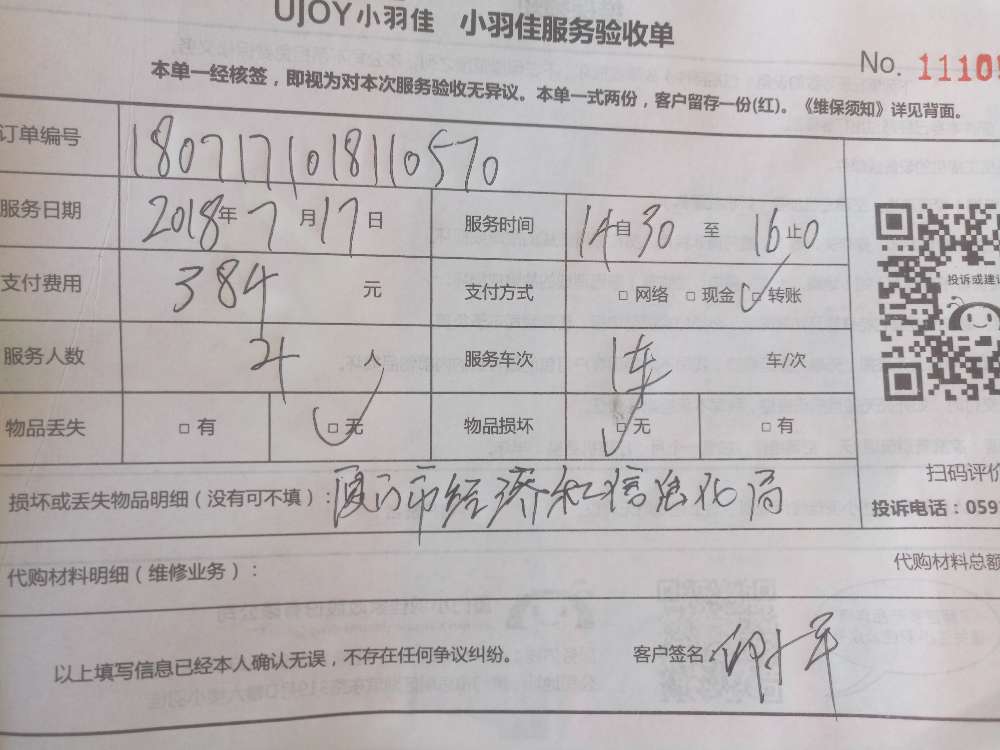 UJOY小羽佳 小羽佳服务验收单
No. 1110
本单一经核签，即视为对本次服务验收无异议。本单一式两份，客户留存一份(红)。《维保须知》详见背面。
订单编号 1807171018110570
服务日期 2018年7月17日 服务时间 14自30至16止0
投诉或建议
支付费用 384元 支付方式 □网络 □现金 □转账
服务人数 4 服务车次 1车 车/次
物品丢失 □有 □无 物品损坏 □无 □有
扫码评价
损坏或丢失物品明细（没有可不填）：厦门市经济和信息化局
投诉电话：059
代购材料明细（维修业务）： 代购材料总额
以上填写信息已经本人确认无误，不存在任何争议纠纷。 客户签名：